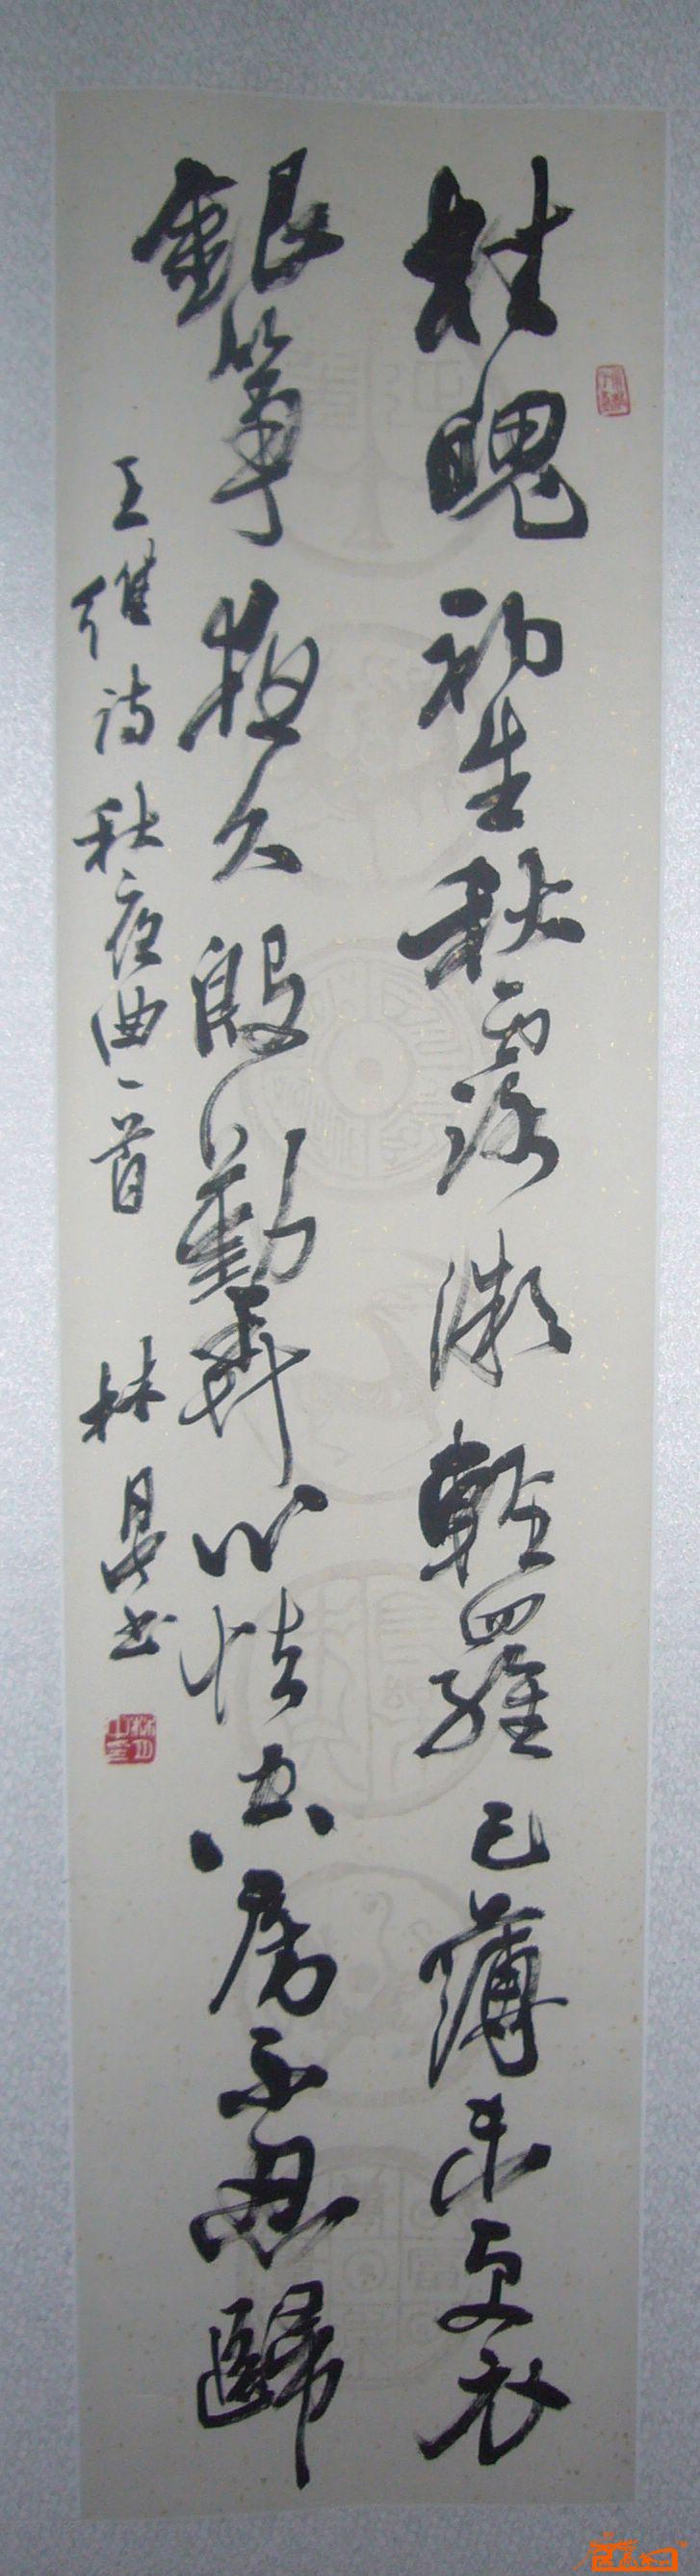 桂魄初生秋露微輕羅已薄未更衣
銀箏夜久殷勤弄心怯空房不忍歸
王維诗秋夜曲一首
林昊书